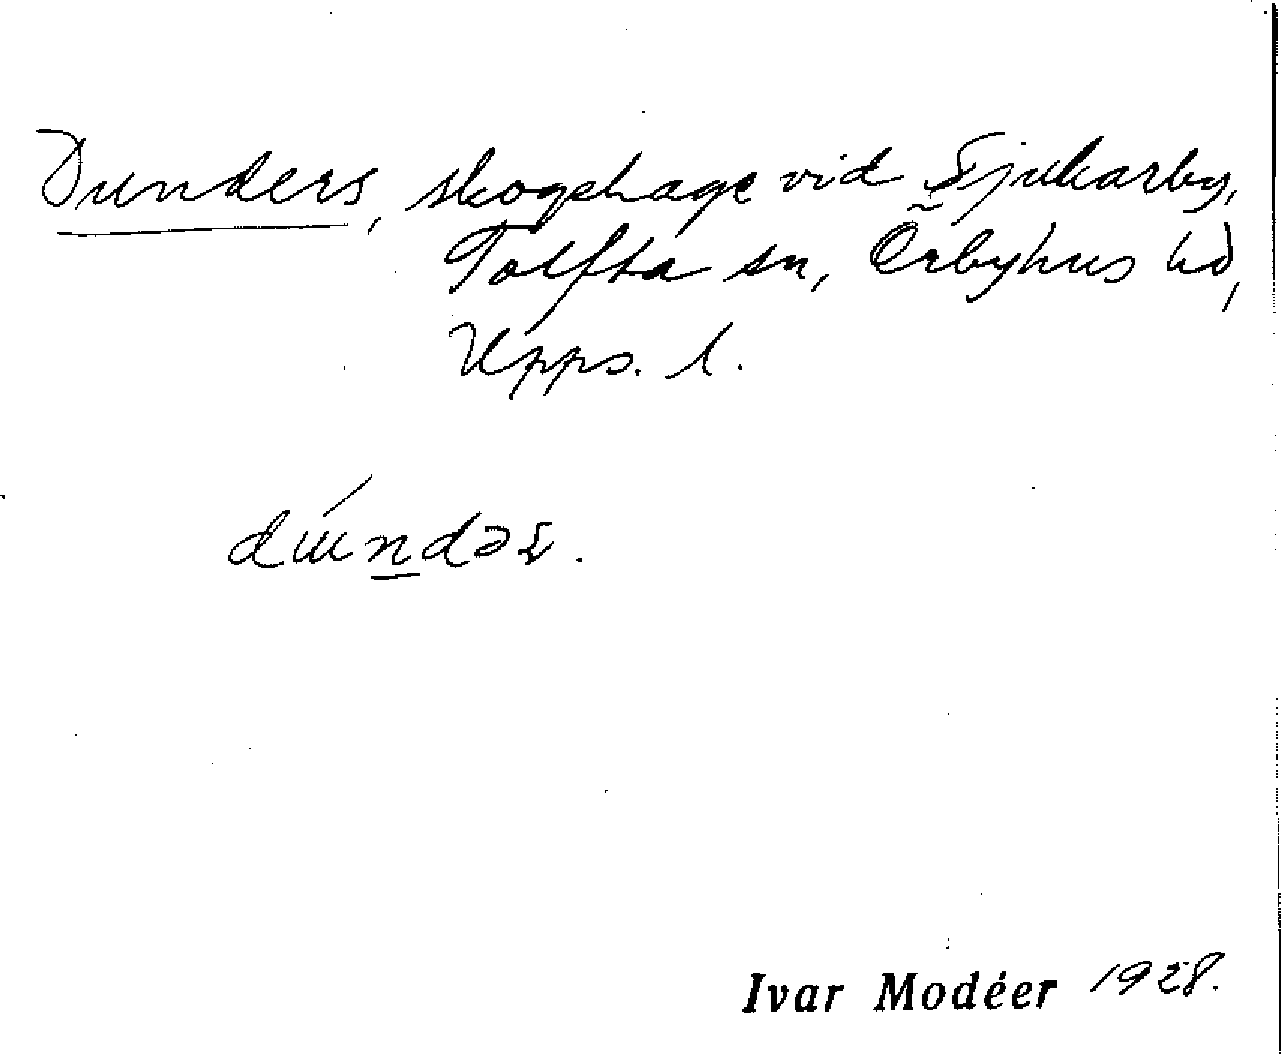 Dunders, skogshage vid Fjukarby,
Tolfta sn, Örbyhus hd,
Upps. l.
Ivar Modéer 1928.